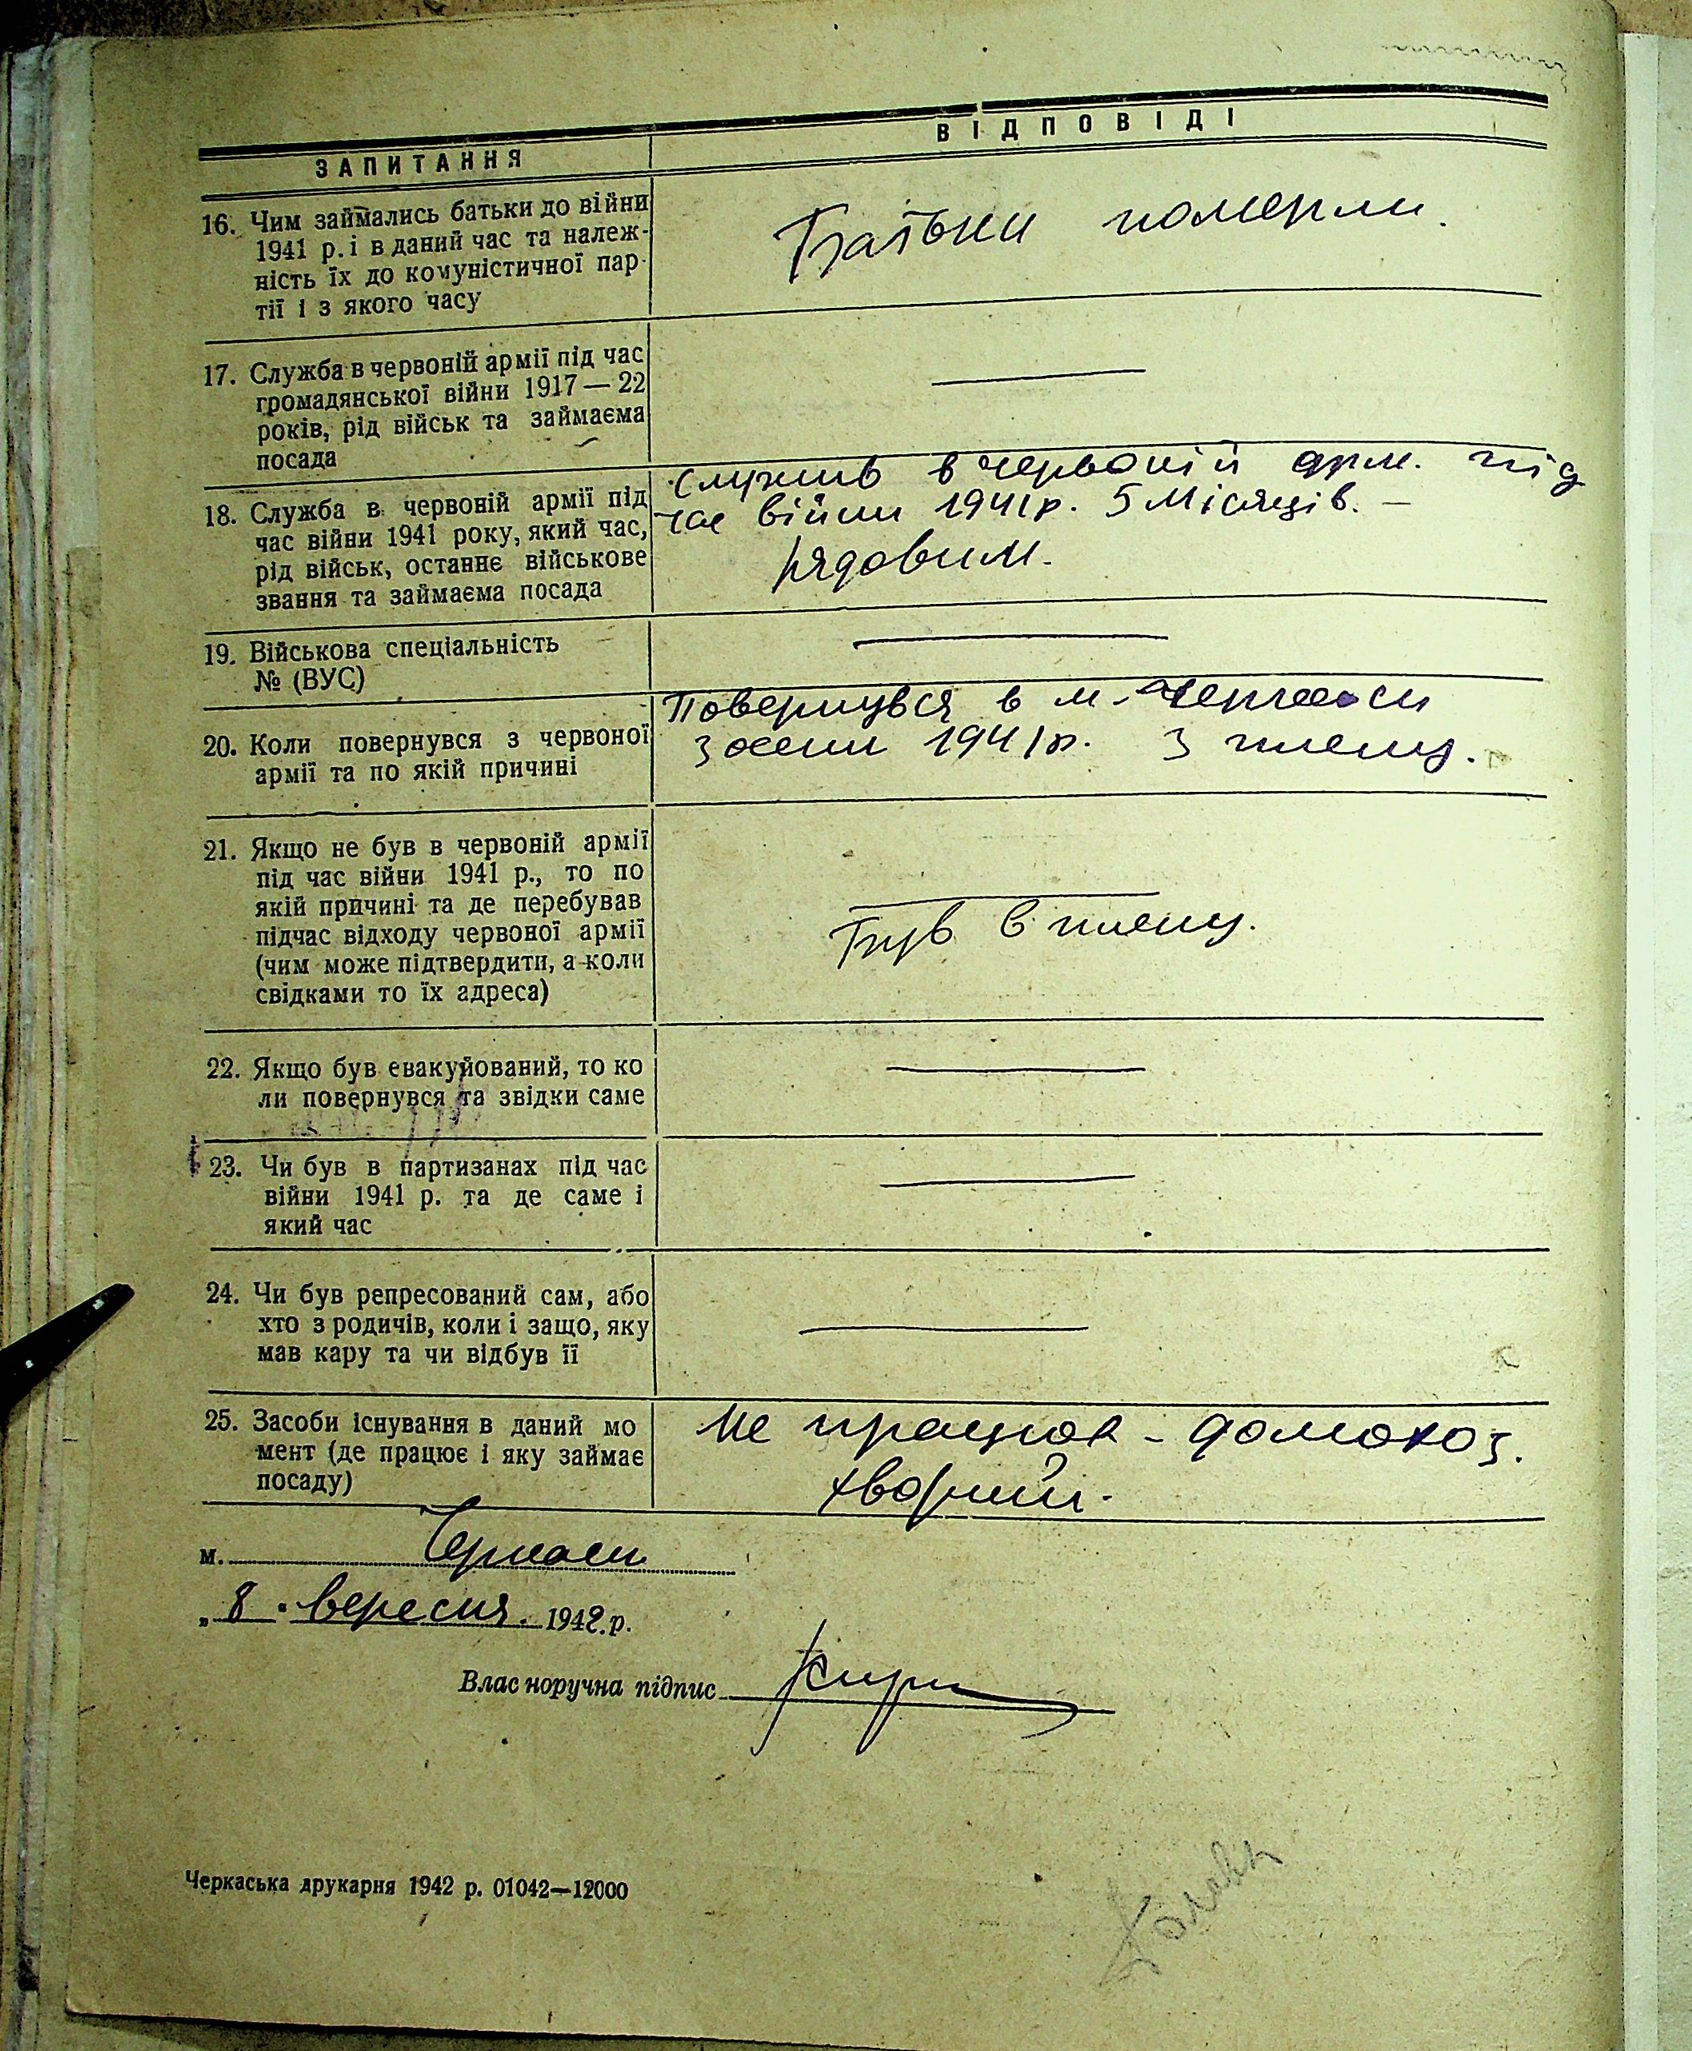 ЗАПИТАННЯ
ВІДПОВІДІ
16. Чим займались батьки до війни
1941 р. і в даний час та належ-
ність їх до комуністичної пар-
тії і з якого часу
Батьки померли.
17. Служба в червоній армії під час
громадянської війни 1917 — 22
років, рід військ та займаєма
посада
18. Служба в червоній армії під
час війни 1941 року, який час,
рід військ, останнє військове
звання та займаєма посада
Служив в червоній арм. під
час війни 1941 р. 5 місяців. —
рядовим.
19. Військова спеціальність
№ (ВУС)
20. Коли повернувся з червоної
армії та по якій причині
Повернувся в м. Черкаси
з осени 1941 р. з плену.
21. Якщо не був в червоній армії
під час війни 1941 р., то по
якій причині та де перебував
підчас відходу червоної армії
(чим може підтвердити, а коли
свідками то їх адреса)
Був в плену.
22. Якщо був евакуйований, то ко
ли повернувся та звідки саме
23. Чи був в партизанах під час
війни 1941 р. та де саме і
який час
24. Чи був репресований сам, або
хто з родичів, коли і защо, яку
мав кару та чи відбув її
25. Засоби існування в даний мо
мент (де працює і яку займає
посаду)
Не працює - домохоз.
хворий.
м. Черкаси
„ 8 . вересня. 1942 р.
Власноручна підпис
Черкаська друкарня 1942 р. 01042—12000